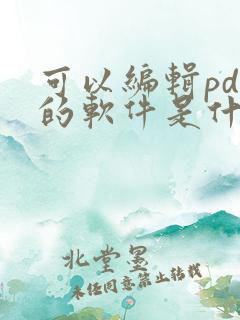 可以編輯pd
的軟件是什
北堂墨
未经同意禁止转载